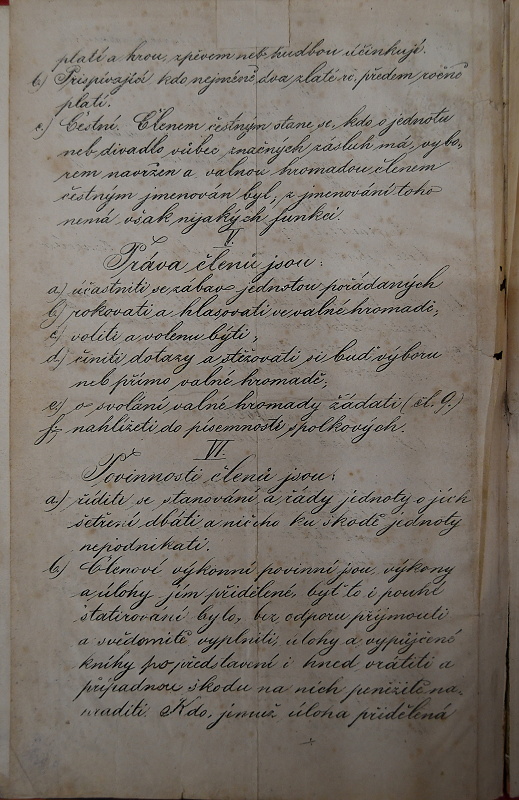 platí a hrou, zpěvem neb hudbou účinkují.
b) Přispívající kdo nejméně dva zlaté rč. předem ročně
platí.
c) Čestní. Členem čestným stane se, kdo o jednotu
neb divadlo vůbec značných zásluh má, výbo-
rem navržen a valnou hromadou členem
čestným jmenován byl; z jmenování toho
nemá však nijakých funkcí.
V.
Práva členů jsou:
a) účastniti se zábav jednotou pořádaných
b) rokovati a hlasovati ve valné hromadě;
c) voliti a volenu býti;
d) činiti dotazy a stěžovati si buď výboru
neb přímo valné hromadě;
e) o svolání valné hromady žádati (čl. 9.)
f) nahlížeti do písemností spolkových.
VI.
Povinnosti členů jsou:
a) říditi se stanovami a řády jednoty o jich
šetření dbáti a ničeho ku škodě jednoty
nepodnikati.
b) Členové výkonní povinni jsou, výkony
a úlohy jim přidělené, byť to i pouhé
statirování bylo, bez odporu přijmouti
a svědomitě vyplniti, úlohy a vypůjčené
knihy po představení i hned vrátiti a
případnou škodu na nich peněžitě na-
hraditi. Kdo, jemuž úloha přidělená